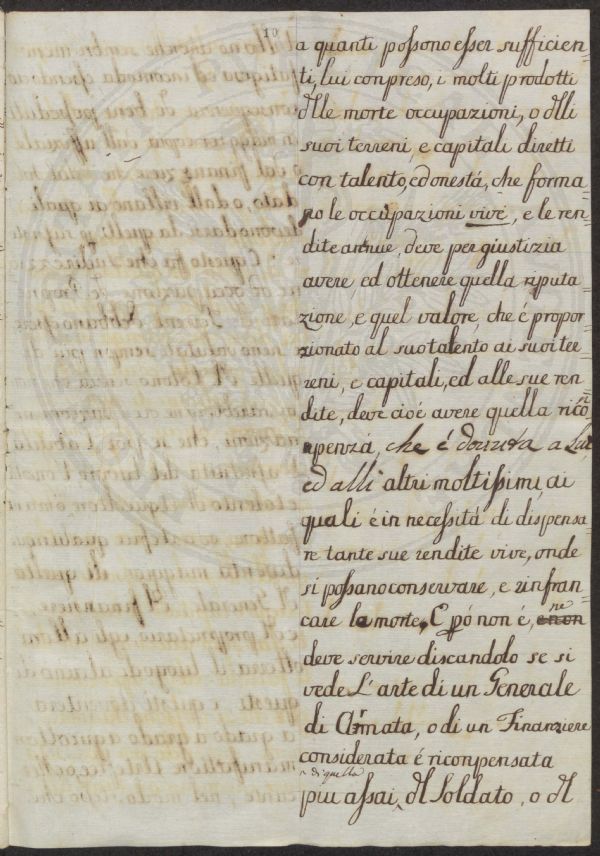 10
a quanti possono esser sufficien-
ti, lui conpreso, i molti prodotti
dlle morte occupazioni, o dlli
suoi terreni, e capitali diretti
con talento, ed onestá, che forma
no le occupazioni vive, e le ren-
dite annue, deve per giustizia
avere ed ottenere quella riputa
zione, e quel valore, che é propor
zionato al suo talento ai suoi ter
reni, e capitali, ed alle sue ren-
dite, deve cioé avere quella rico
penza, che é dovuta a Lui,
ed alli altri moltissimi, ai
quali é in necessitá di dispensa
re tante sue rendite vive, onde
si possano conservare, e rinfran-
care le morte, E pó non é, ne
deve servire discandolo se si
vede L'arte di un Generale
di Armata, o di un Finanziere
considerata é riconpensata
di quella
piu assai, dl Soldato, o dl